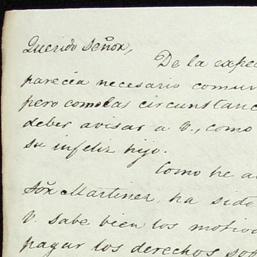 Querido Señor,
De la expe
parecia necesario comun
pero como las circunstanc
deber avisar a V., como
su infeliz hijo.
Como he a
Sõr Martinez, ha sido
V. sabe bien los motivo
pagar los derechos so